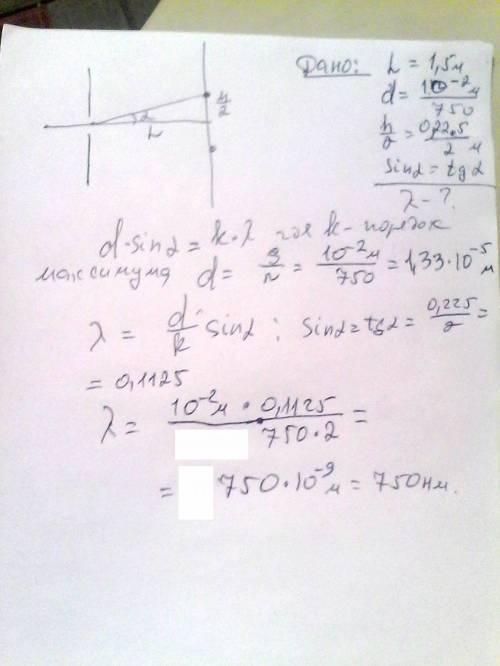 Дано: L = 1,5м
d = 10⁻²м / 750
h/2 = 0,22.5 / 2 м
sinα = tgα
λ - ?
h/2
α
L
d·sinα = k·λ где k - порядок
максимума d = = 10⁻²м / 750 = 1,33·10⁻⁵ м
λ = d/k · sinα ; sinα = tgα = 0,225 / 2 =
= 0,1125
λ = 10⁻²м · 0,1125 / 750·2 =
= 750·10⁻⁹ м = 750 нм.